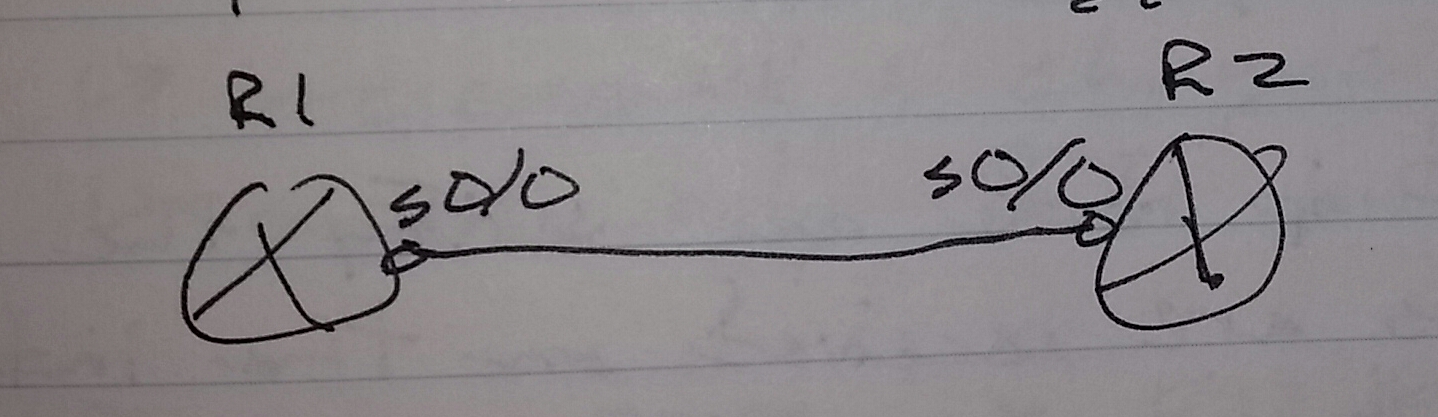 R1 R2
s0/0 s0/0